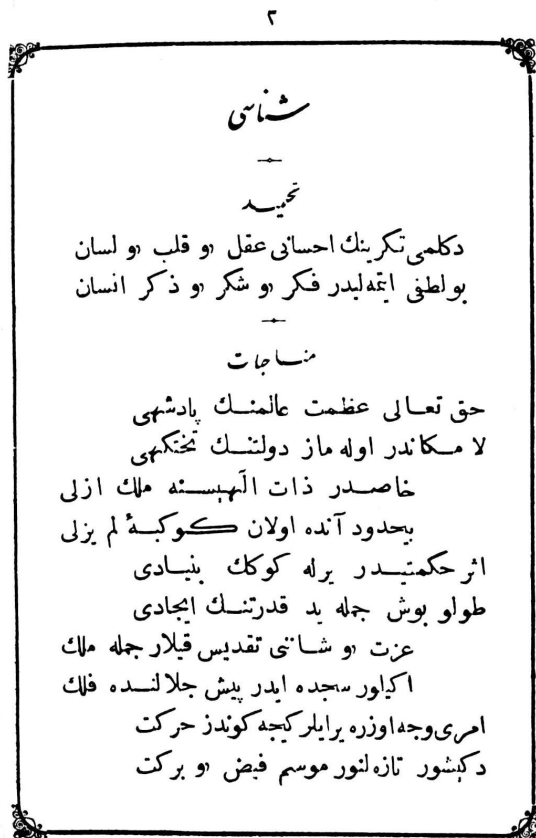 ٢
شناسی
تحمید
دکلمی تکرینك احسانی عقل ‌‌و قلب و لسان
بو لطفی ایتمه‌لیدر فکر و شکر و ذکر انسان
مناجات
حق تعالی عظمت عالمنك پادشهی
لا مکاندر اوله ماز دولتنك تختکهی
خاصدر ذات الٓهیسنه ملك ازلی
بیحدود آنده اولان کوکبۀ لم یزلی
اثر حکمتیدر یرله کوکك بنیادی
طولو بوش جمله ید قدرتنك ایجادی
عزت و شاننی تقدیس قیلار جمله ملك
اکیلور سجده ایدر پیش جلالنده فلك
امری وجه اوزره یر ایلر کیجه کوندز حرکت
دکیشور تازه‌لنور موسم فیض و برکت